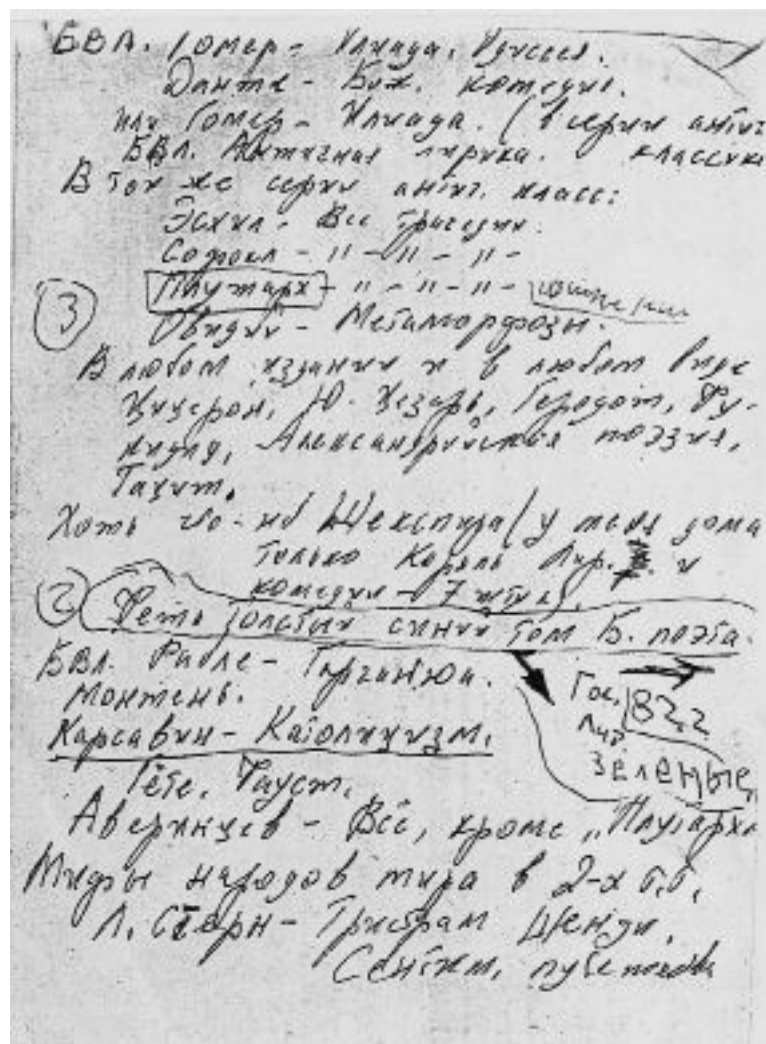 БВЛ. Гомер - Илиада, Одиссея.
Данте - Бож. комедия.
или Гомер - Илиада. (в серии антич.
БВЛ. Античная лирика. классики
В той же серии антич. класс:
Эсхил - Все трагедии.
Софокл - " - " - " -
Плутарх - " - " - " -
3
Овидий - Метаморфозы.
В любом издании и в любом виде
Цицерон, Ю. Цезарь, Геродот, Фу-
кидид, Александрийская поэзия,
Тацит.
Хоть что-нб Шекспира (у меня дома
только Король Лир. и
комедии - 7 штук)
2
Фета толстый синий том Б. поэта.
БВЛ. Рабле - Гаргантюа.
Монтень.
Гос.
Лит
82,2
Карсавин - Католицизм.
ЗЕЛЕНЫЕ,
Гёте. Фауст.
Аверинцев - Всё, кроме "Плутарха
Мифы народов мира в 2-х т.т.
Л. Стерн - Тристрам Шенди,
Сентим. путешествие